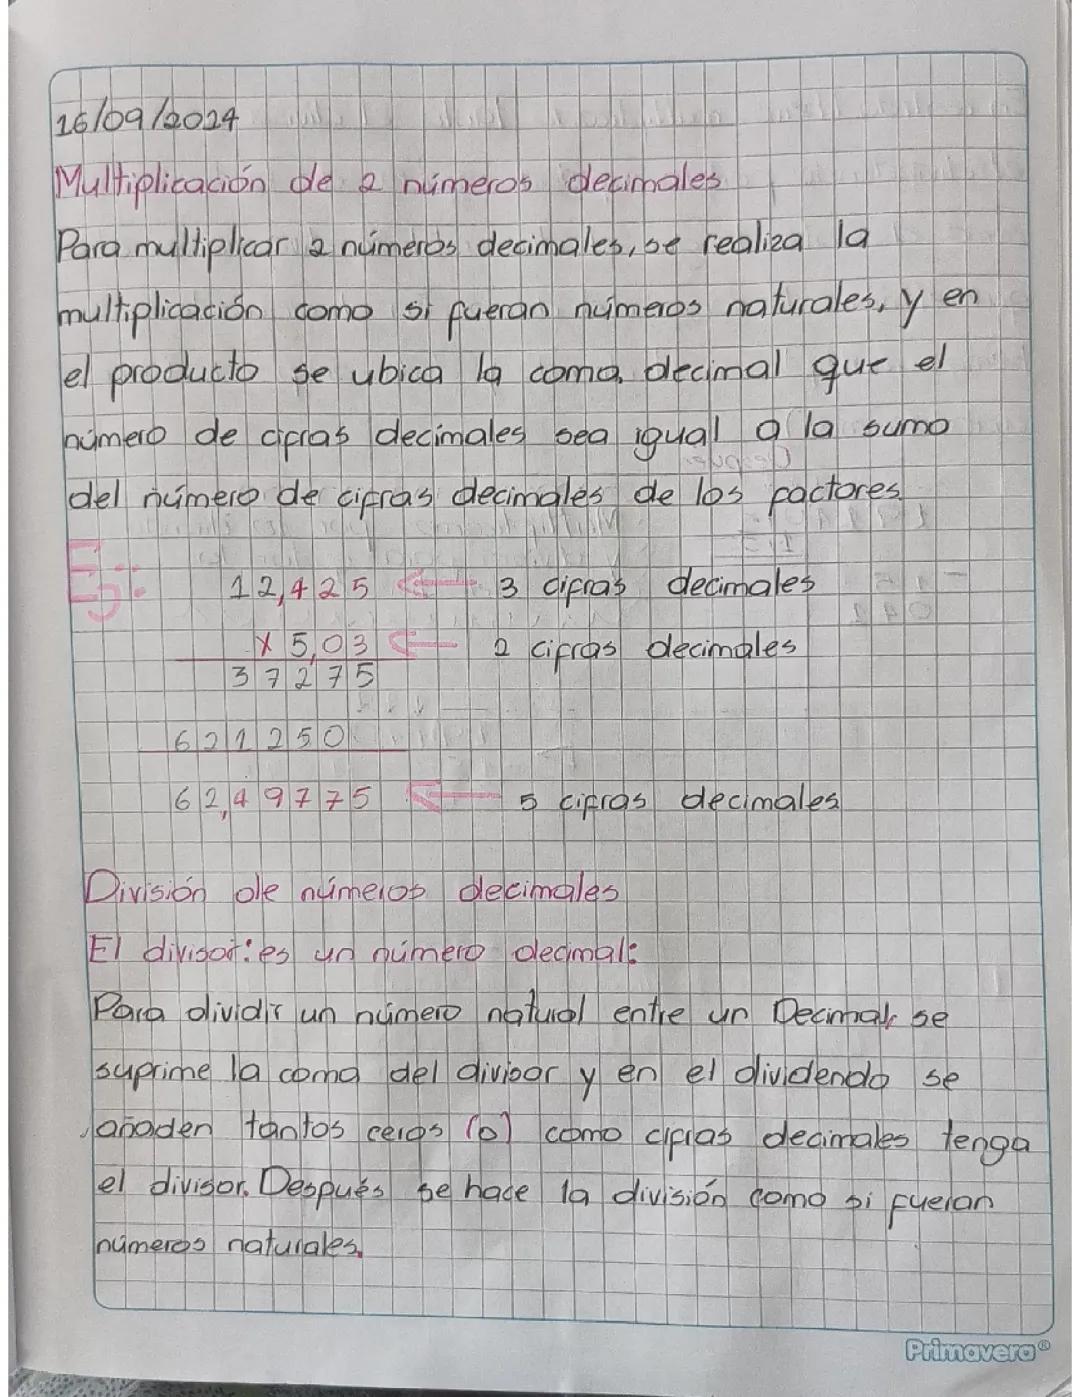 16/09/2024
Multiplicación de 2 números decimales
Para multiplicar 2 números decimales, se realiza la
multiplicación como si fueran números naturales, y en
el producto se ubica la coma decimal que el
número de cifras decimales sea igual a la suma
del número de cifras decimales de los factores
Ej:
12,425 ← 3 cifras decimales
x 5,03 ← 2 cifras decimales
37275
621250
62,49775 ← 5 cifras decimales
División de números decimales
El divisor: es un número decimal:
Para dividir un número natural entre un Decimal, se
suprime la coma del divisor y en el dividendo se
añaden tantos ceros (0) como cifras decimales tenga
el divisor. Después se hace la división como si fueran
números naturales.
Primavera®